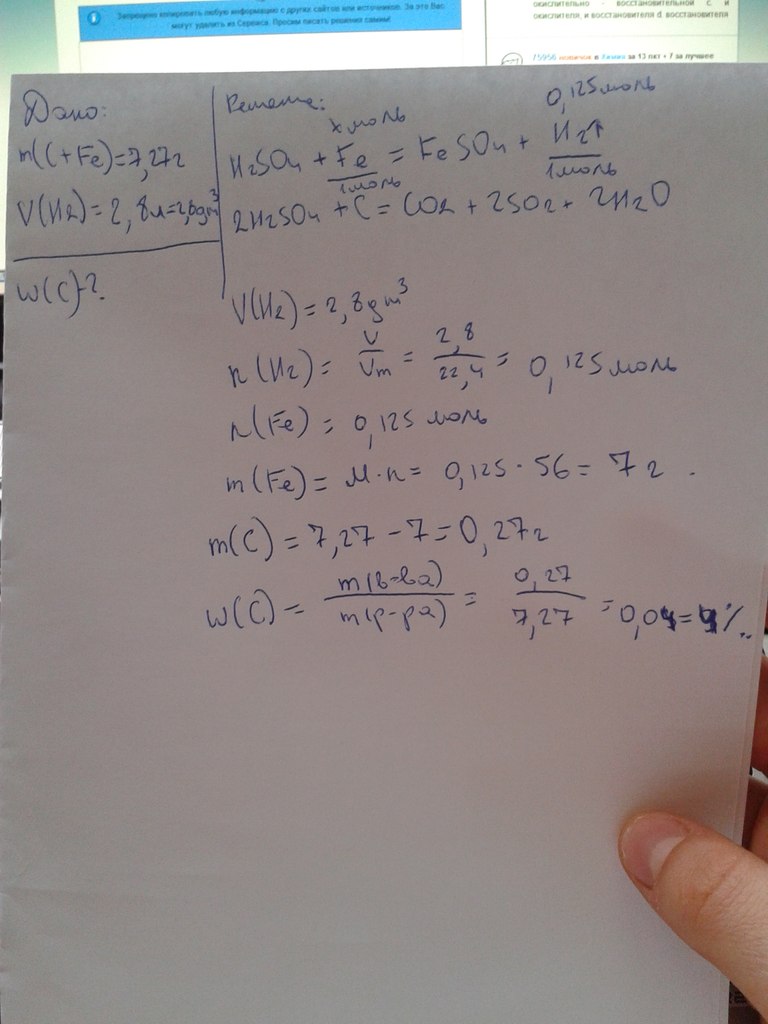 Запрещено копировать любую информацию с других сайтов или источников. За это Вас
могут удалить из Сервиса. Просим писать решения самим!
окислительно - восстановительной с и
окислителя, и восстановителя d. восстановителя
75956 новичок в Химия за 13 пкт + 7 за лучшее
Дано:
m(C+Fe)=7,27г
V(H2)=2,8л=2,8дм³
w(C)-?
Решение:
x моль
0,125моль
H2SO4 + Fe = FeSO4 + H2↑
1моль
1моль
2H2SO4 + C = CO2 + 2SO2 + 2H2O
V(H2)=2,8дм³
n(H2)= V/Vm = 2,8/22,4 = 0,125моль
n(Fe) = 0,125 моль
m(Fe) = M·n= 0,125·56=7г.
m(C)=7,27-7=0,27г
w(C) = m(в-ва)/m(р-ра) = 0,27/7,27 = 0,04=4%.